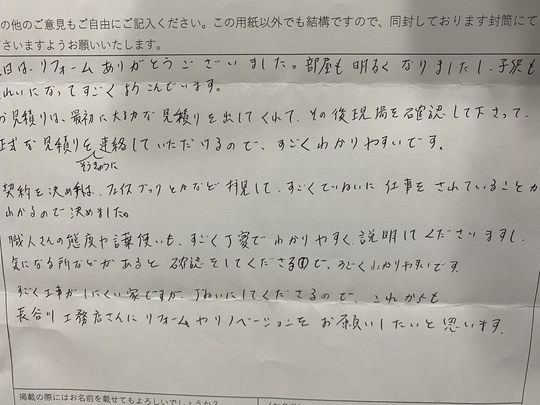 の他のご意見もご自由にご記入ください。この用紙以外でも結構ですので、同封しております封筒にて
さいますようお願いいたします。
日は、リフォームありがとうございました。部屋も明るくなりましたし、子供も
れいになってすごくよろこんでいます。
見積りは、最初に大まかな見積りを出してくれて、その後現場を確認して下さって、
正式な見積りを連絡していただけるので、すごくわかりやすいです。
契約を決め手は、フェイスブックとかなど拝見して、すごくていねいに仕事をされていることが
わかるので決めました。
職人さんの態度や言葉使いも、すごく丁寧でわかりやすく、説明してくださいますし、
気になる所などがあると確認をしてくださるので、すごくわかりやすいです。
すごく工事がしにくい家ですが、ていねいにしてくださるので、これからも
長谷川工務店さんにリフォームやリノベーションをお願いしたいと思います。
掲載の際にはお名前を載せてもよろしいでしょうか?